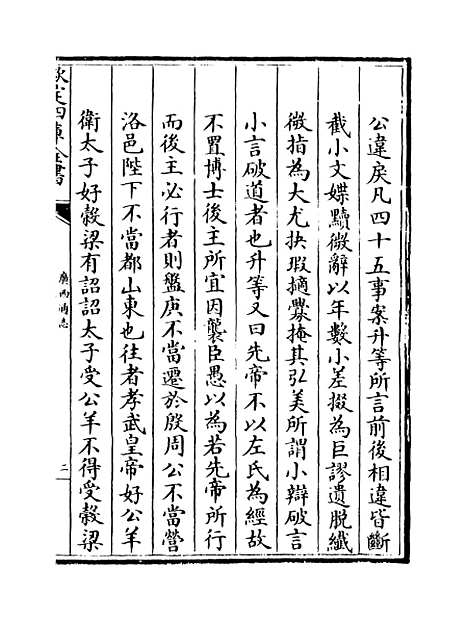 公違戾凡四十五事案升等所言前後相違皆斷
截小文媟黷微辭以年數小差掇為巨謬遺脫纖
微指為大尤抉瑕擿釁掩其弘美所謂小辯破言
小言破道者也升等又曰先帝不以左氏為經故
不置博士後主所宜因襲臣愚以為若先帝所行
而後主必行者則盤庚不當遷於殷周公不當營
洛邑陛下不當都山東也往者孝武皇帝好公羊
衛太子好穀梁有詔詔太子受公羊不得受穀梁
欽定四庫全書
廣西通志
二